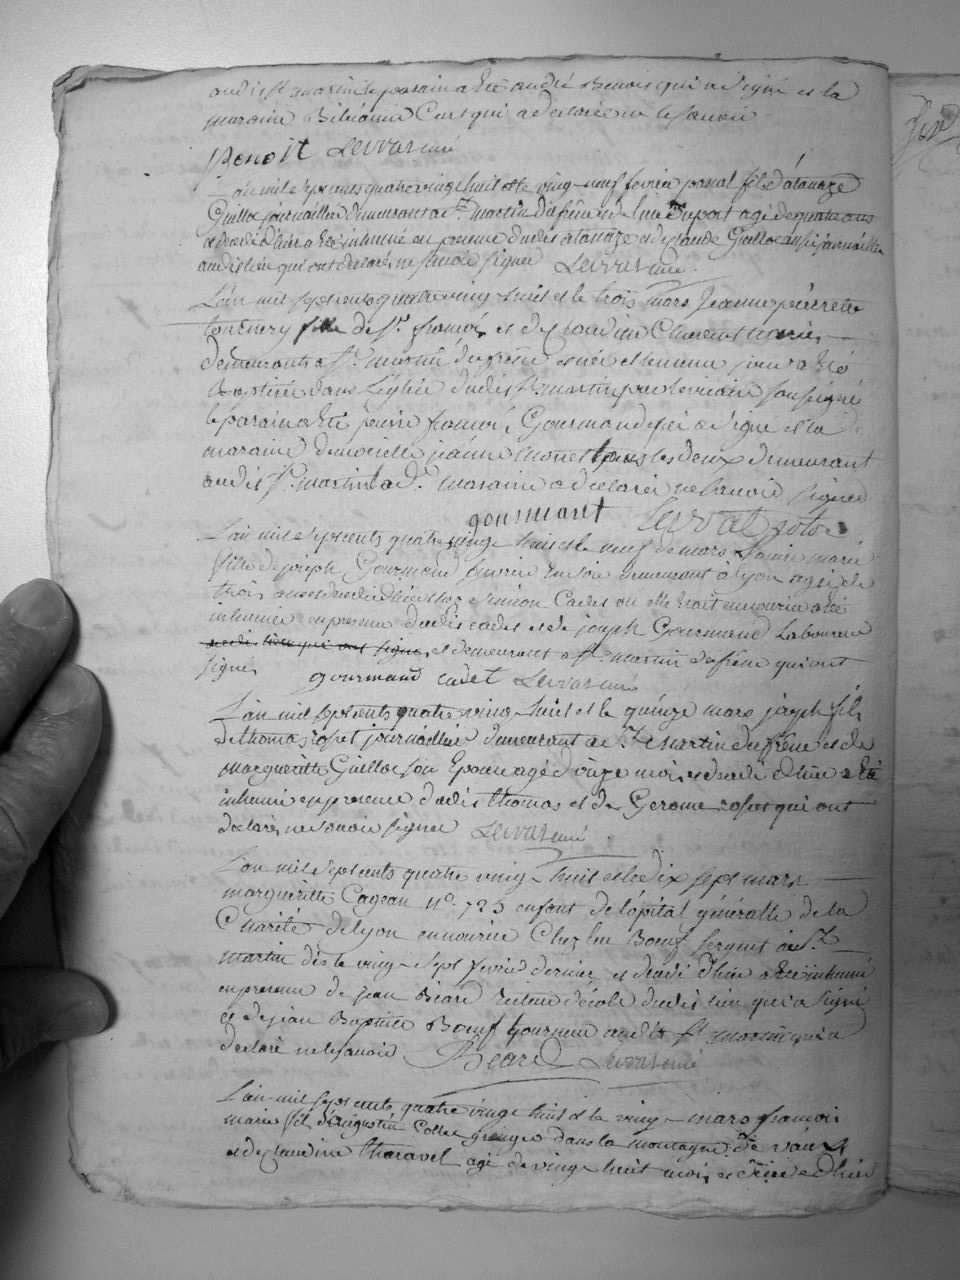 audit St martin le parain a Eté andré Benoit qui a Signé et la
maraine qui a declarée ne le savoir
Benoit Levrat curé
L'an mil sept cents quatre vingt huit et le vingt-neuf fevrier fils d'atanaze
Guilloz journaillier demeurant a St martin du frêne et de age de quatre ans
et decedé d'hier a Eté inhumé en presence dudit atanaze et de Guilloz aussi journaillier
audit lieu qui ont declarés ne savoir signer Levrat curé.
L'an mil sept cents quatre vingt huit et le trois mars Jeanne pierrette
fille de Sr françois et de Claudine
demeurants a St martin du frêne née et le meme jour a Eté
Baptisée dans l'eglise dudit St martin par le vicaire soussigné
le parain a Eté pierre françois Gourmand qui a Signé et la
maraine demoiselle jeanne tous les deux demeurant
audit St martin la de maraine a declarée ne savoir signer
gourmant Levrat
L'an mil sept cents quatre vingt huit et le neuf de mars marie
fille de joseph Gourmand ouvrier en soie demeurant à lyon agée de
trois ans et decedée d'hier chez Cadet ou elle etait en nourice a été
inhumée en presence dudit cadet et de joseph Gourmand Laboureur
qui ont signé et demeurant a St martin du frêne qui ont
signés gourmand cadet Levrat curé
L'an mil sept cents quatre vingt huit et le quinze mars joseph fils
de thomas rosset journaillier demeurant a St Martin du frêne et de
Margueritte Guilloz son Epouse agé d'onze mois et decedé d'hier a Eté
inhumé en presence dudit thomas et de Gerome rosset qui ont
declarés ne savoir signer Levrat curé
L'an mil sept cents quatre vingt huit et le dix sept mars
margueritte Cageau No. 725 enfant de l'opital générall de la
Charité de lyon en nourice Chez luc Bouf sergent à St
martin dès le vingt-sept fevrier dernier et decedé d'hier a Eté inhumé
en presence de jean Béard recteur d'école dudit lieu qui a Signé
et de jean Baptiste Bouf audit St martin qui a
declaré ne le savoir Béard Levrat curé
L'an mil sept cents quatre vingt huit et le vingt mars françois
marie fils d'augustin Collet granger dans la montagne de
et de claudine tharavel agé de vingt huit mois et decedé d'hier